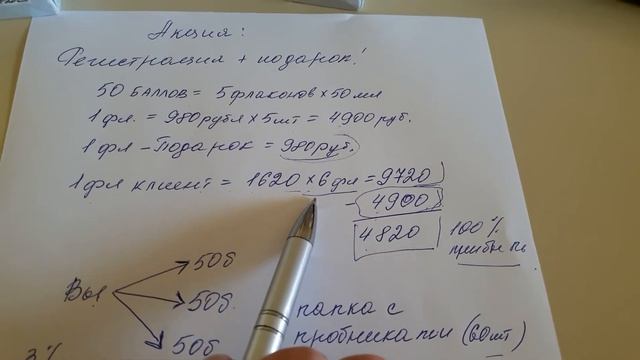 Акция:
Регистрация + подарок!
50 баллов = 5 флаконов x 50 мл
1 фл. = 980 рубл x 5 шт = 4900 руб.
1 фл - Подарок = 980 руб.
1 фл клиент = 1620 x 6 фл = 9720
- 4900
4820 100% прибыль
50б
Вы 50б.
50б
папка с
пробниками (60шт)
3%